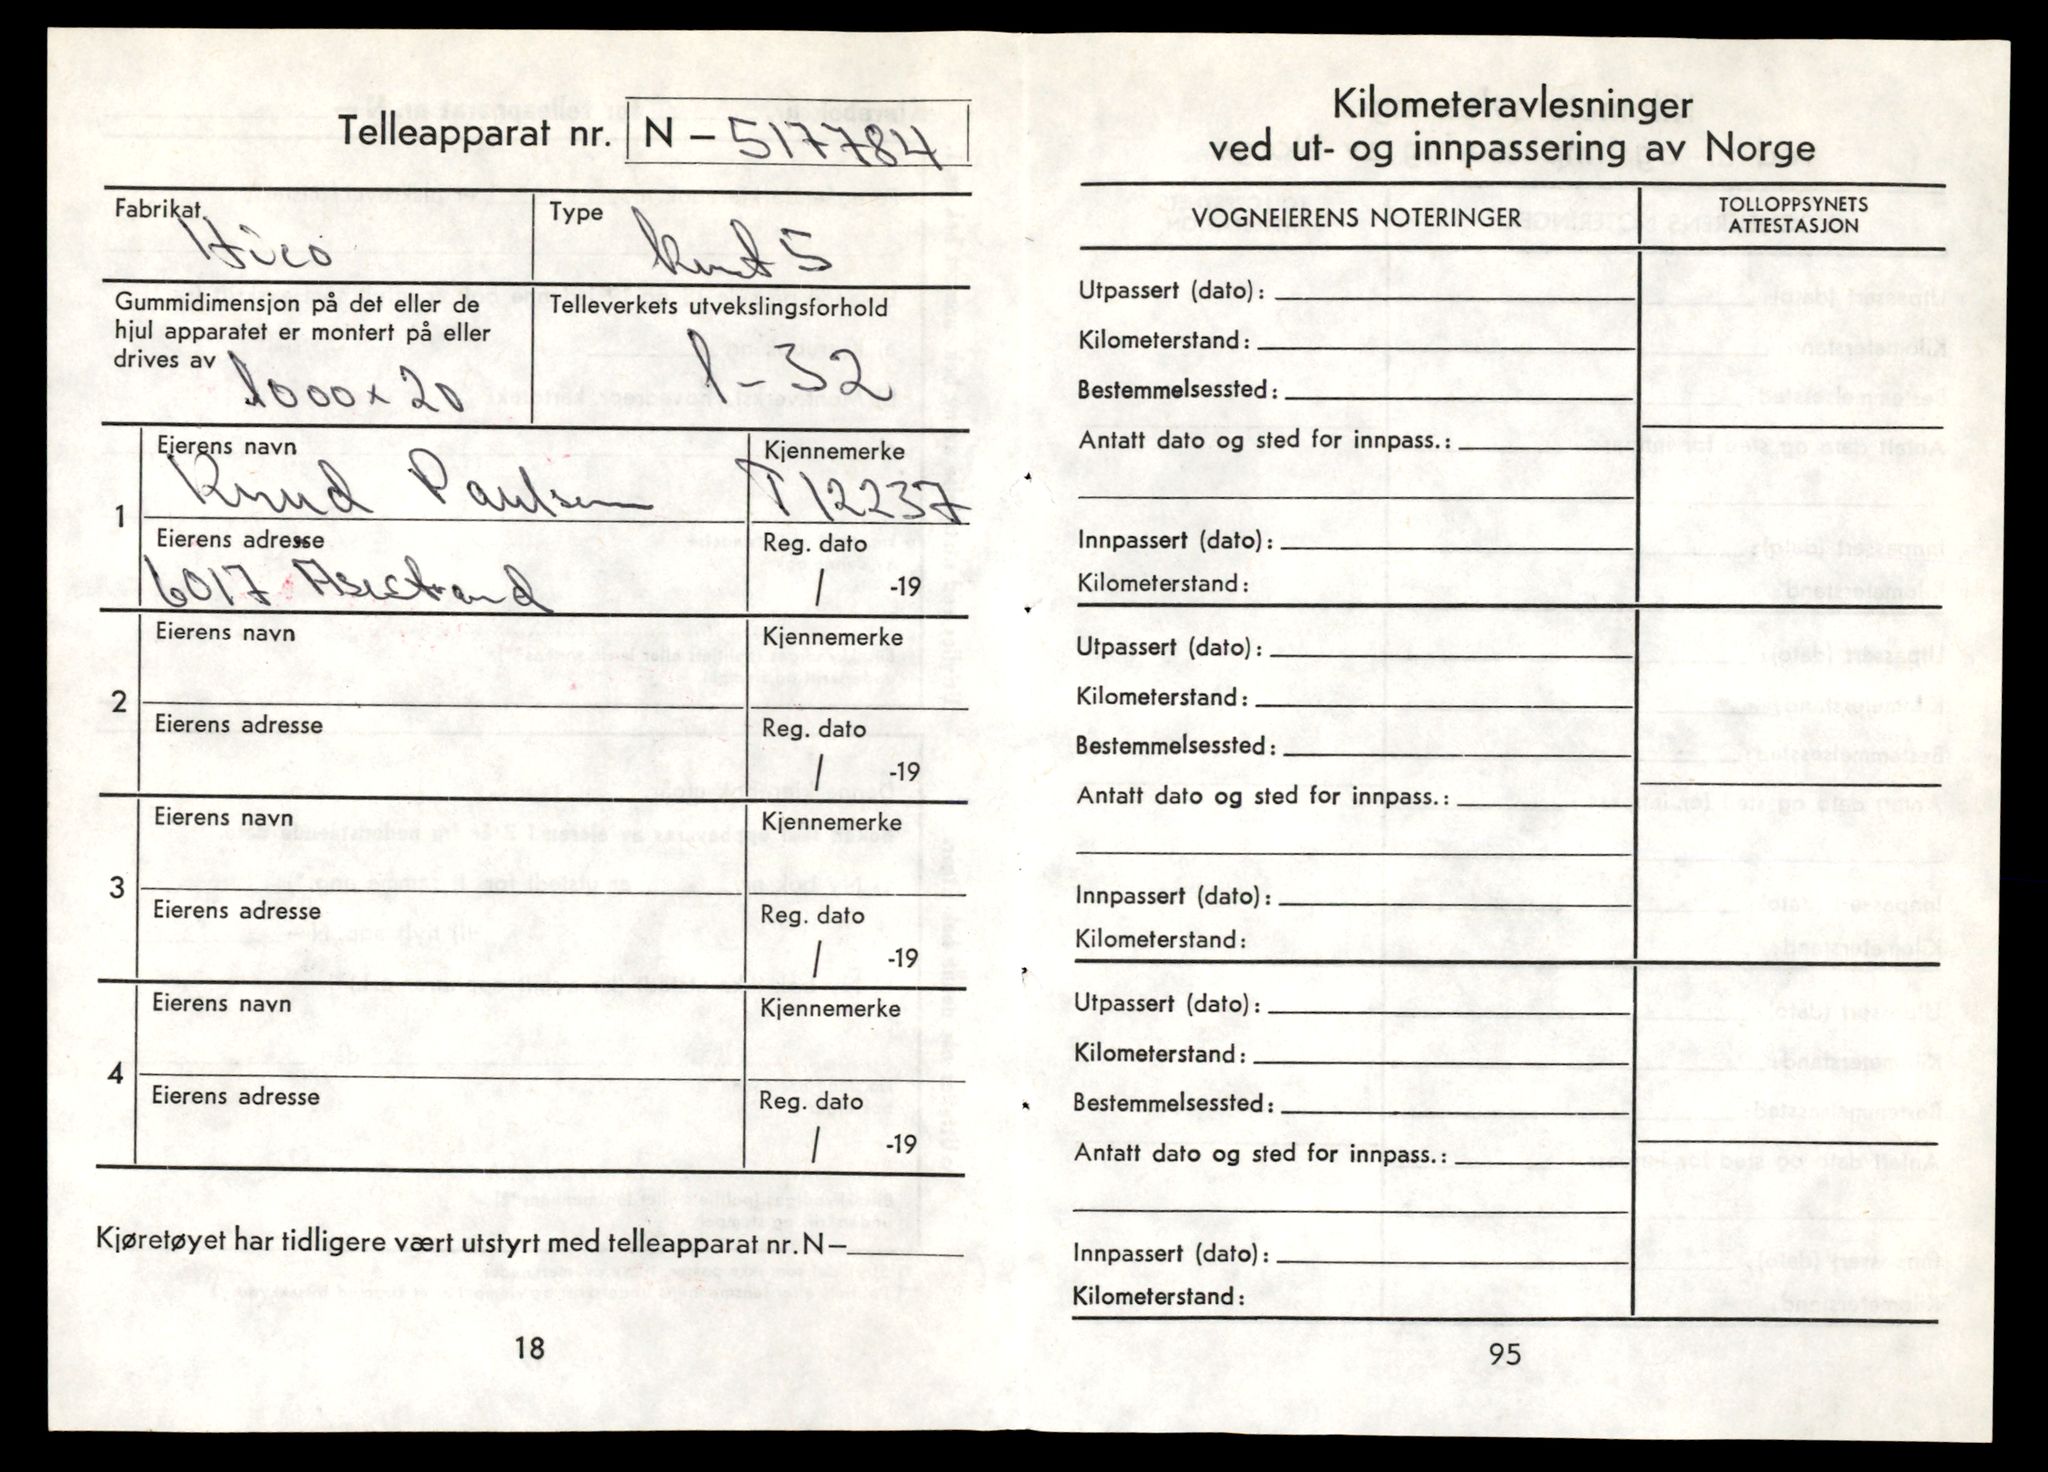 Telleapparat nr. N – 517784
Fabrikat
Type
Gummidimensjon på det eller de
hjul apparatet er montert på eller
drives av 1000 x 20
Telleverkets utvekslingsforhold
1-32
Eierens navn
Kjennemerke
Knud Paulsen
T12237
1
Eierens adresse
Reg. dato
6017 Asestrand
/ -19
Eierens navn
Kjennemerke
2
Eierens adresse
Reg. dato
/ -19
Eierens navn
Kjennemerke
3
Eierens adresse
Reg. dato
/ -19
Eierens navn
Kjennemerke
4
Eierens adresse
Reg. dato
/ -19
Kjøretøyet har tidligere vært utstyrt med telleapparat nr. N–
18
Kilometeravlesninger
ved ut- og innpassering av Norge
VOGNEIERENS NOTERINGER
TOLLOPPSYNETS
ATTESTASJON
Utpassert (dato):
Kilometerstand:
Bestemmelsessted:
Antatt dato og sted for innpass.:
Innpassert (dato):
Kilometerstand:
Utpassert (dato):
Kilometerstand:
Bestemmelsessted:
Antatt dato og sted for innpass.:
Innpassert (dato):
Kilometerstand:
Utpassert (dato):
Kilometerstand:
Bestemmelsessted:
Antatt dato og sted for innpass.:
Innpassert (dato):
Kilometerstand:
95